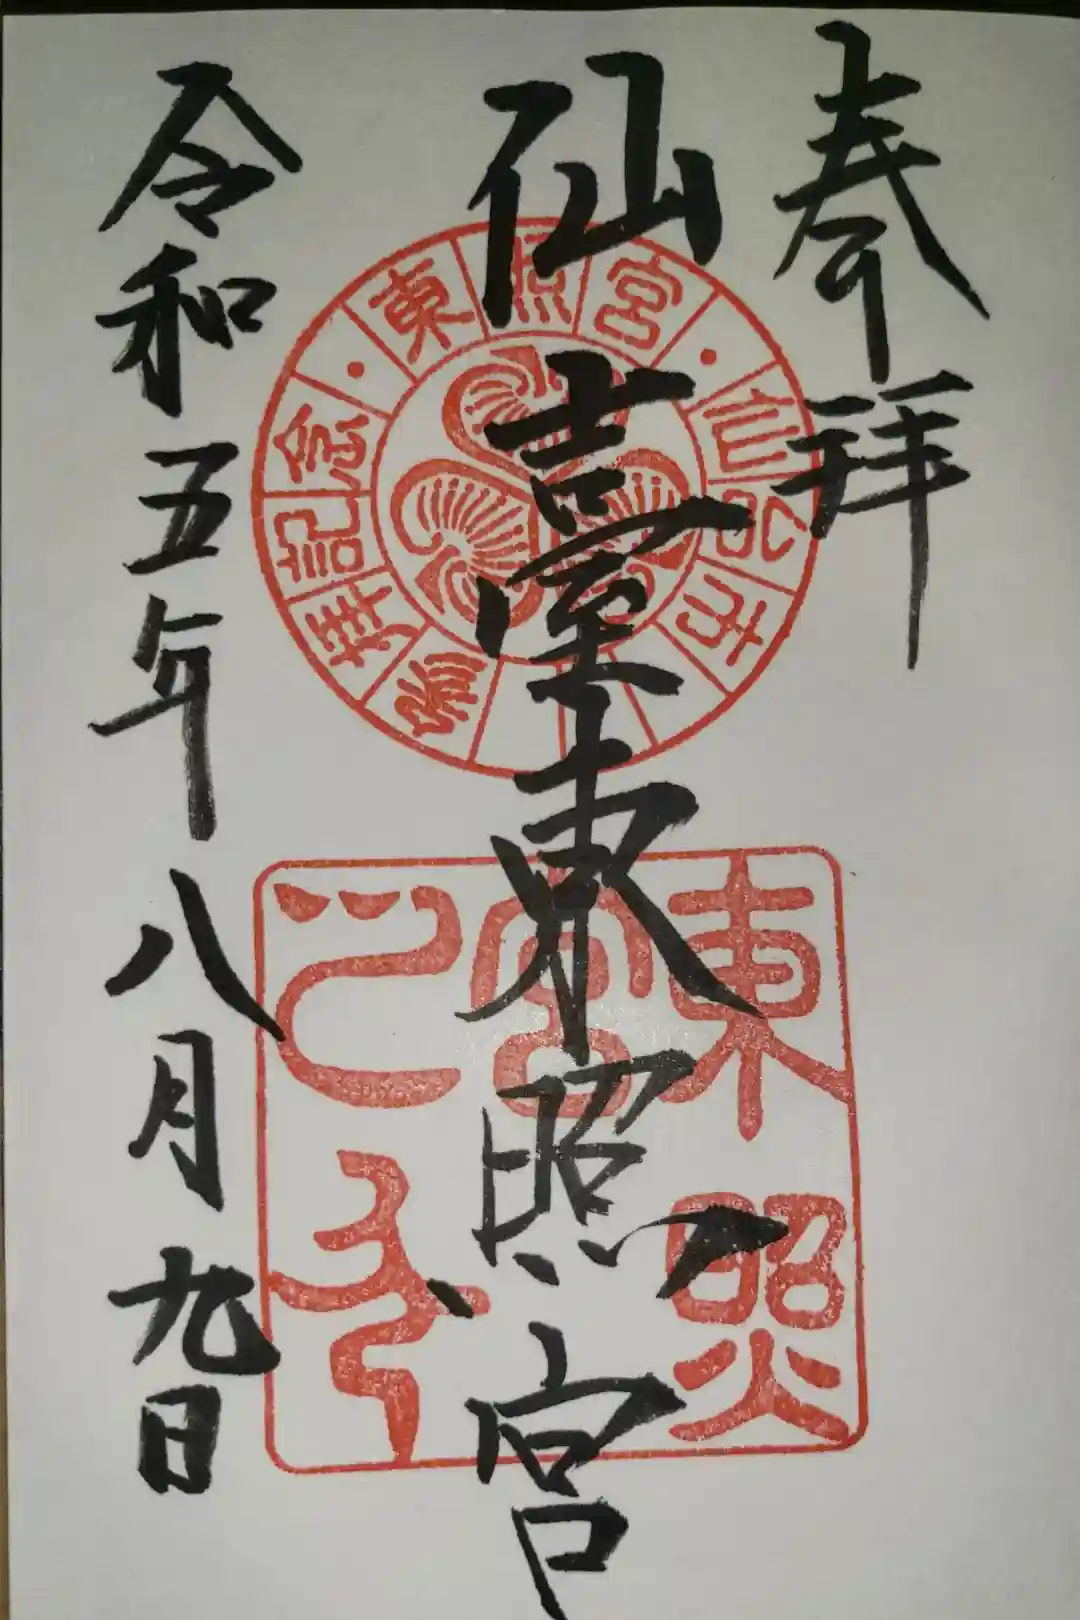 奉拝
仙臺東照宮
令和五年八月九日
東照宮
仙台市
参拝記念
東照
宮
之印